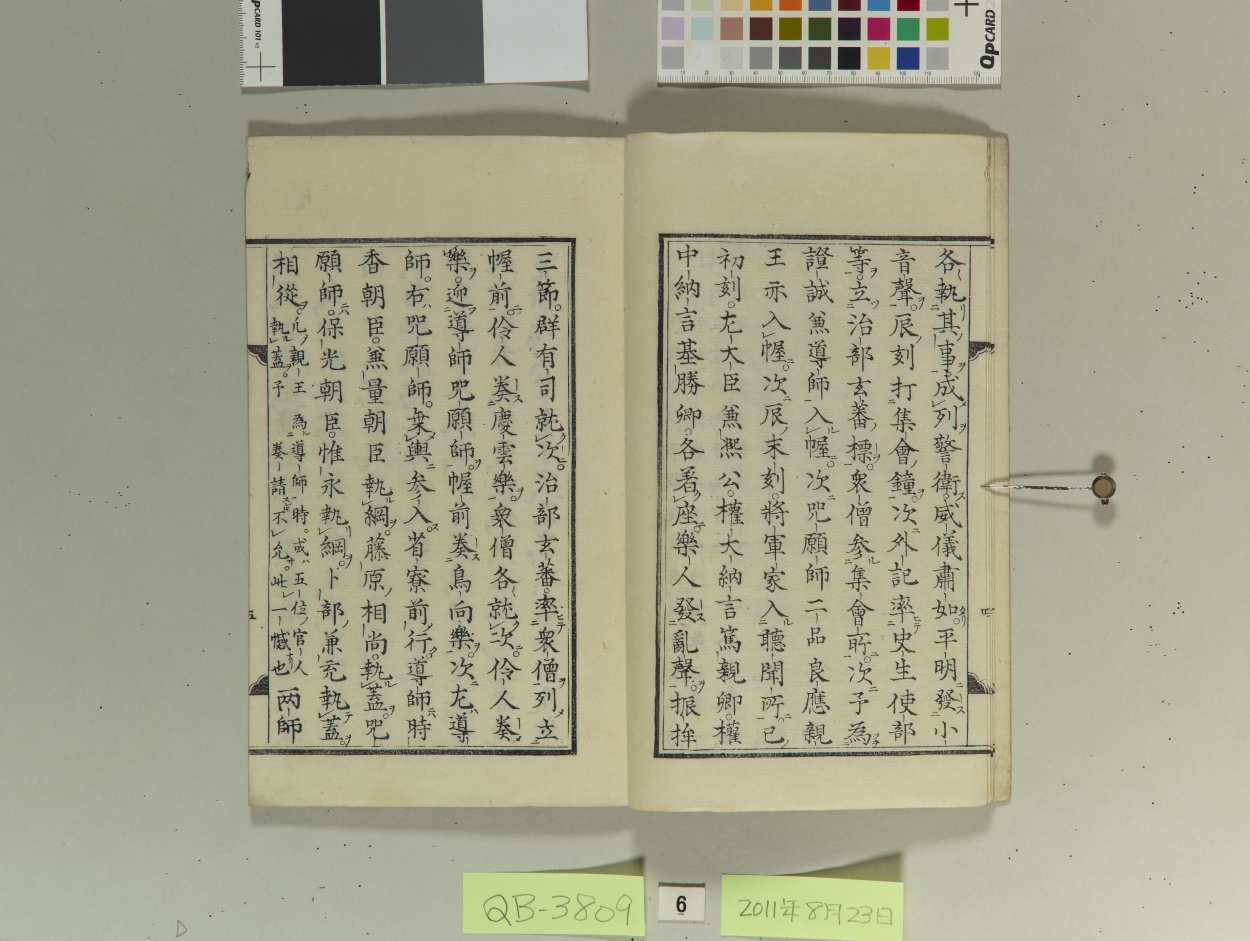 各執其事成列警衛威儀肅如平明發小
音聲。辰刻打集會鐘。次外記率史生使部
等。立治部玄蕃標。衆僧参集會所。次予為
證誠兼導師入幄。次咒願師二品良應親
王亦入幄。次辰末刻。將軍家入聽聞所已
初刻。左大臣兼熙公。權大納言篤親卿。權
中納言基勝卿。各著座。樂人發亂聲。振桙
三節。群有司就次。治部玄蕃。率衆僧列立
幄前。伶人奏慶雲樂。衆僧各就次。伶人奏
樂。迎導師咒願師。幄前奏鳥向樂。次左導
師。右咒願師。乗輿参入。省寮前行。導師時
香朝臣。兼量朝臣執綱。藤原相尚執蓋。咒
願師。保光朝臣。惟永執綱。卜部兼充執蓋。
相從。凡親王為導師時。或五位官人
執蓋。予奏請不允。此一憾也
両師
四
五
QPCARD 101
QPCARD
QB-3809
6
2011年8月23日